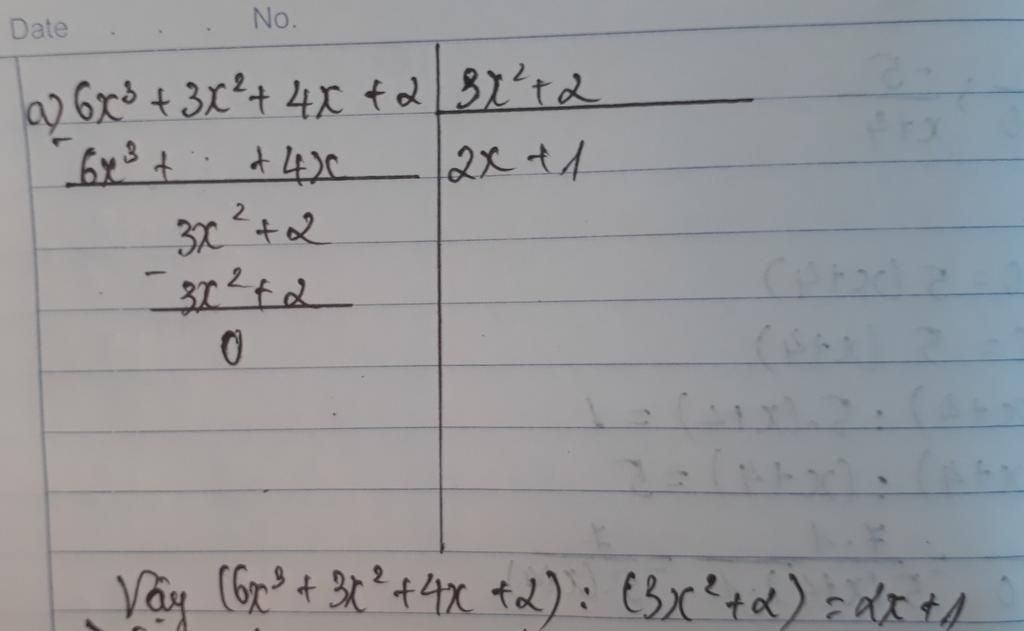 Date . . . No.
a) 6x³ + 3x² + 4x + 2 | 3x² + 2
- 6x³ + . + 4x | 2x + 1
3x² + 2
- 3x² + 2
0
Vậy (6x³ + 3x² + 4x + 2) : (3x² + 2) = 2x + 1